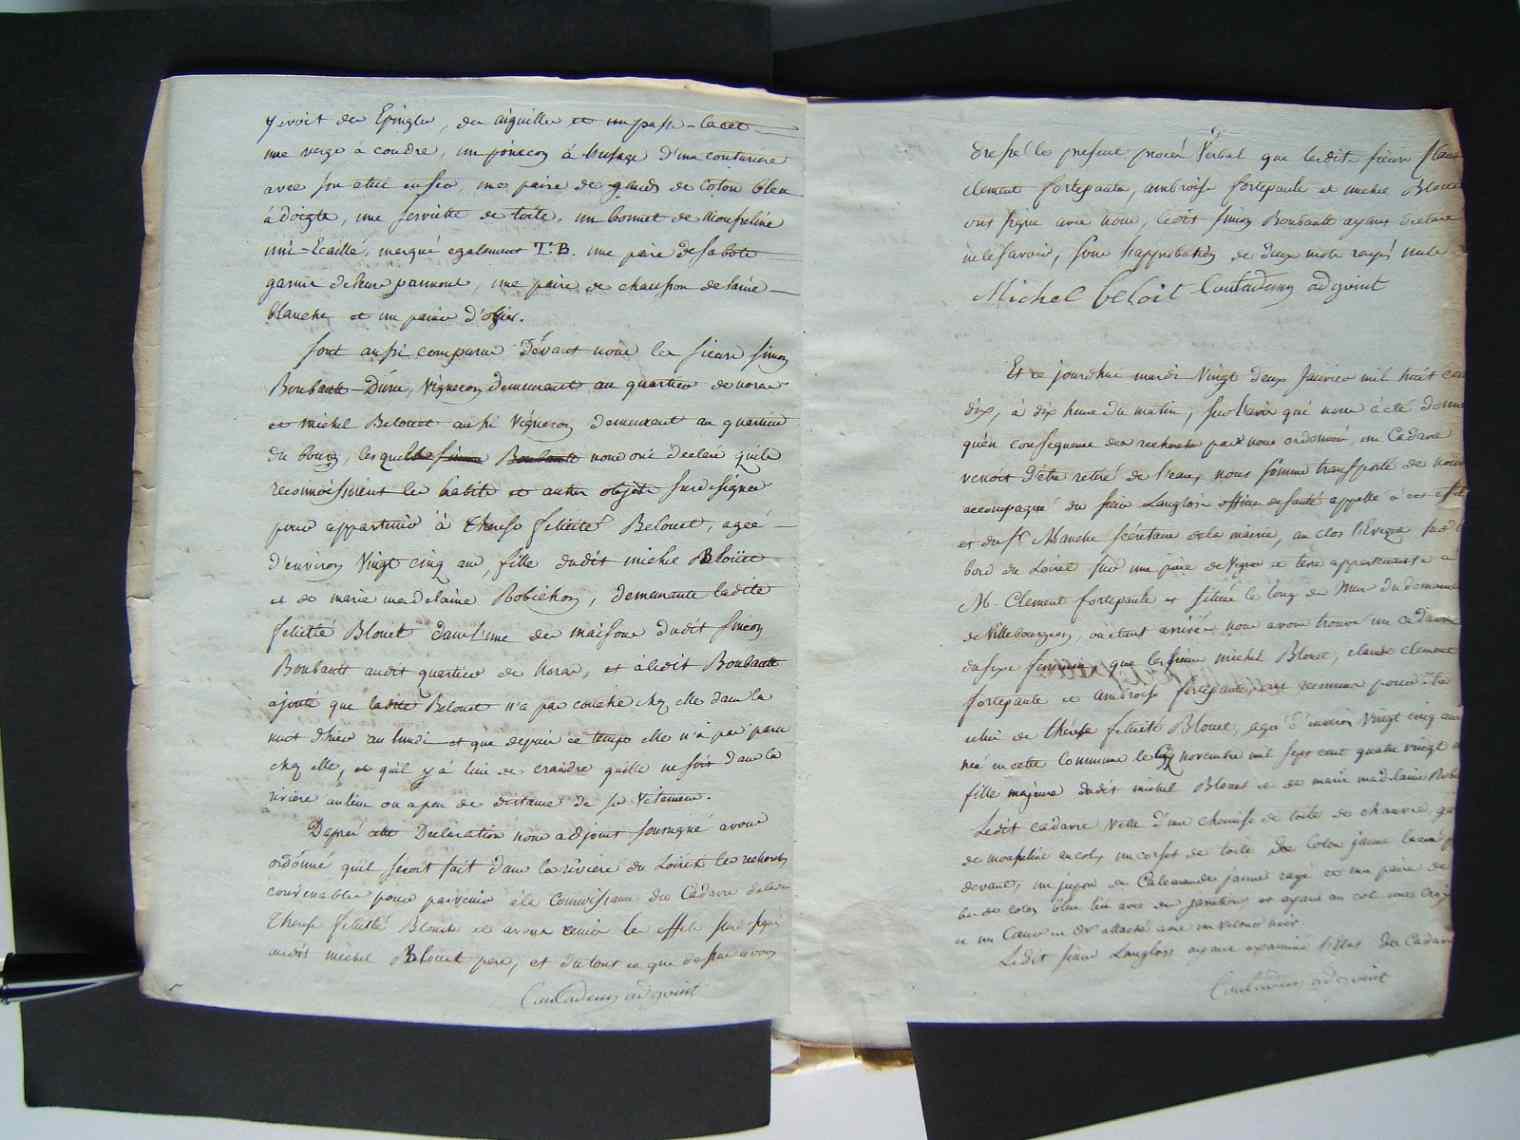 y avoit des Epingles, des aiguilles et un passe-lacet
une verge à coudre, un poincon à l'usage d'une couturiere
avec son etui en fer, une paire de gands de Coton bleu
à doigts, une serviette de toile, un bonnet de Mousseline
mi-Ecaillé, marqué egalement T.B. une paire de sabots
garnie de leur pannoul, une paire de chausson de laine
blanche et un panier d'ozier.
Sont aussi comparu Dévant nous les sieurs Simon
Boubault-Dure, Vigneron demeurant au quartier de noras
et michel Belouet aussi Vigneron demeurant au quartier
du bourg, lesquels Boubault nous ont declaré qu'ils
reconnoissoient les habits et autres objets sus designés
pour appartenir à therese felicité Belouet, agée
d'environ Vingt cinq ans, fille dudit michel Blouet
et de marie madelaine Robichon, demeurante ladite
felicité Blouet dans l'une des maisons dudit Simon
Boubault audit quartier de noras, et à ledit Boubault
ajouté que ladite Belouet n'a pas couché chez elle dans la
nuit d'hier au lundi et que depuis ce temps elle n'a pas paru
chez elle, et qu'il y à lieu de craindre qu'elle ne soit dans la
riviere au lieu ou a peu de distance de ses Vetemens.
D'après cette Declaration nous adjoint soussigné avons
ordonné qu'il seroit fait dans la riviere du Loiret les recherches
convenables pour parvenir à la Connoissance du Cadavre de ladite
therese felicité Blouet et avons remis les effets sus designés
audit michel Blouet pere, et du tout ce que dessus avons
adjoint
dressé le present procès Verbal que lesdits sieurs
clement fortepaute, ambroise fortepaute et michel Blouet
ont signé avec nous, ledit Simon Boubault ayant declaré
ne le savoir, sous l'approbation de deux mots rayés nuls
Michel beloit adjoint
Et ce jourd'hui mardi Vingt deux Janvier mil huit cent
dix, à dix heures du matin, sur l'avis qui nous à été donné
qu'en consequence des recherches par nous ordonnées, un Cadavre
venoit d'etre retiré de l'eau, nous somme transporté de nouveau
accompagné du sieur Langlois officier de santé appellé à cet effet
et du Sr Manche sécretaire de la mairie, au clos l'Evêque sur le
bord du Loiret sur une piece de Vigne et terre appartenante à
M. Clement fortepaute et située le long du Mur du domaine
de Villebourgeon, ou etant arrivés nous avons trouvé un cadavre
du sexe feminin, que les sieurs michel Blouet, claude Clement
fortepaute et ambroise fortepaute, ont reconnu pour être
celui de therese felicité Blouet, agée d'environ Vingt cinq ans
née en cette Commune le novembre mil sept cent quatre vingt
fille majeure dudit michel Blouet et de marie madelaine
Ledit cadavre vetu d'une chemise de toile de chanvre,
de mousseline en col, un corset de toile de coton jaune lacé
devant, un jupon de Calemande jaune rayé et une paire de
bas de coton bleu lié avec des jarretieres et ayant au col une croix
et un Coeur en or attaché avec un velours noir
Ledit sieur Langlois ayant examiné l'état du Cadavre
adjoint